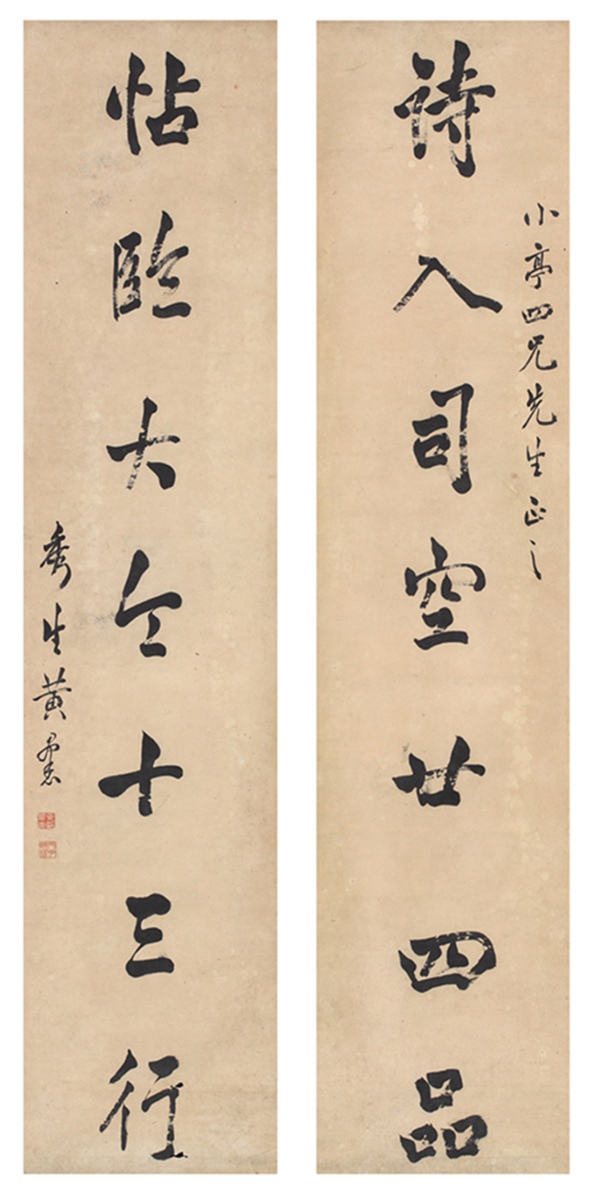 小亭四兄先生正之
詩入司空廿四品
帖臨大令十三行
秀生黃